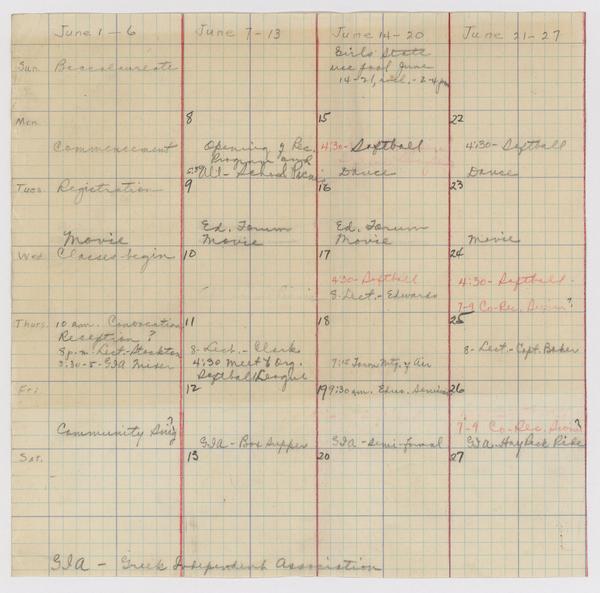 June 1-6
June 7-13
June 14-20
June 21-27
Sun.
Baccalaureate
Girls State
use pool June
14-21, incl. - 2-4 pm
Mon.
8
15
22
Commencement
Opening of Rec.
Program and
All-School Picnic
4:30- Softball
Dance
4:30- Softball
Dance
Tues.
Registration
9
16
23
Movie
Ed. Forum
Movie
Ed. Forum
Movie
Movie
Wed.
Classes begin
10
17
24
4:30- Softball
8- Lect. - Edwards
4:30- Softball
7-9 Co-Rec. Swim?
Thurs.
10 am. Convocation
Reception?
8 p.m. Lect.-Stockton
3:30-5-GIA Mixer
11
8- Lect. - Clark
4:30 Meet & Org.
Softball League
18
7:15 Town Mtg. of Air
25
8- Lect. - Capt. Baker
Fri.
12
19
9:30 am. Educ. Seminar
26
Community Sing?
GIA - Box Supper
GIA - Semi-formal
7-9 Co-Rec. Swim?
GIA - Hay Rack Ride
Sat.
13
20
27
GIA - Greek Independent Association